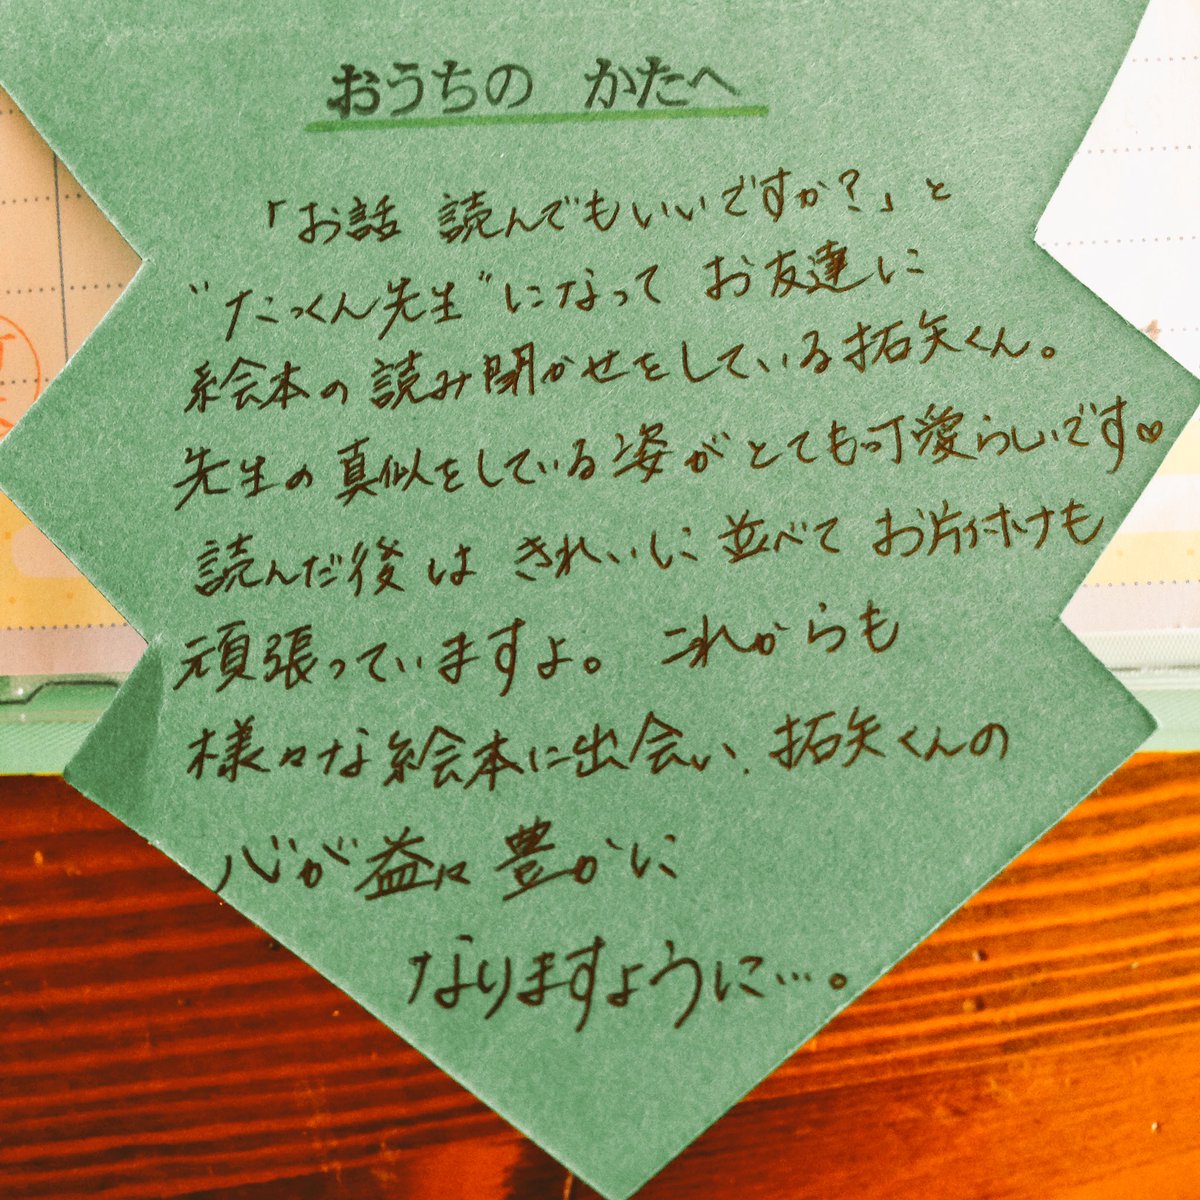 おうちの かたへ
「お話 読んでもいいですか?」と
"たっくん先生"になって お友達に
絵本の 読み聞かせをしている拓矢くん。
先生の真似をしている姿がとても可愛らしいです♡
読んだ後は きれいに並べて お片付けも
頑張っていますよ。 これからも
様々な絵本に出会い、拓矢くんの
心が益々 豊かに
なりますように…。